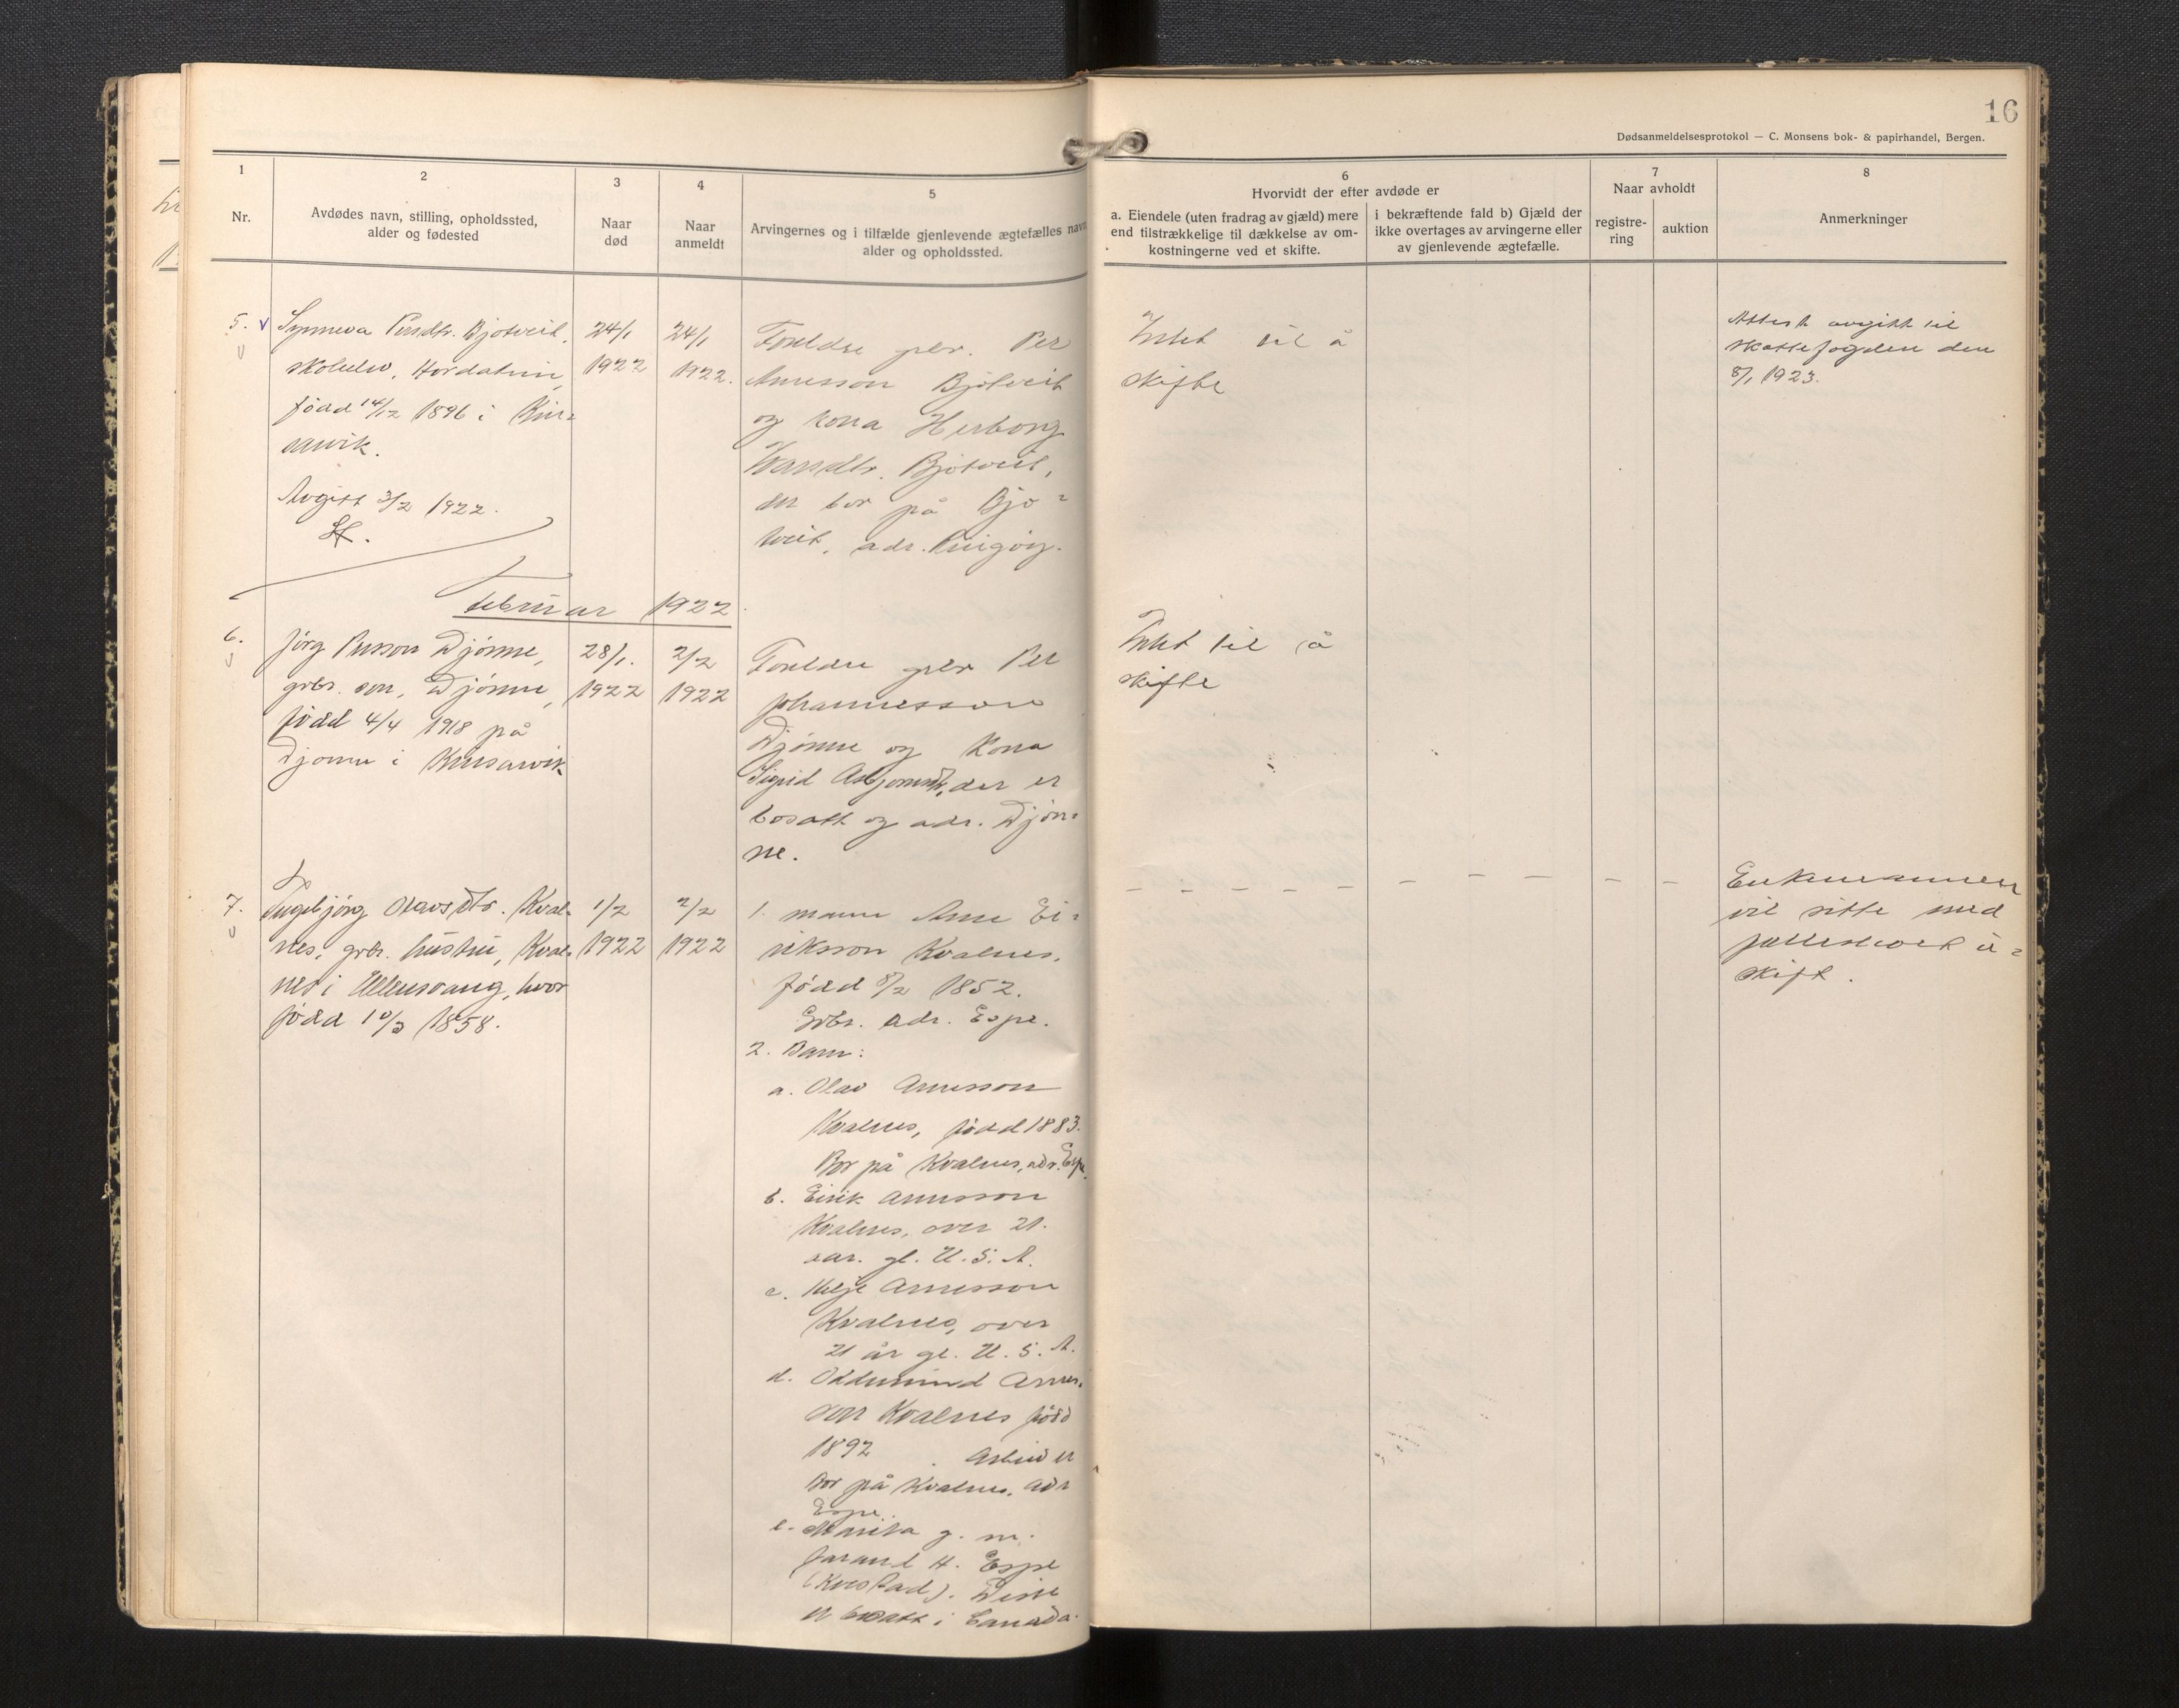 16
Dødsanmeldelsesprotokol — C. Monsens bok- & papirhandel, Bergen.
1
Nr.
2
Avdødes navn, stilling, opholdssted,
alder og fødested
3
Naar
død
4
Naar
anmeldt
5
Arvingernes og i tilfælde gjenlevende ægtefælles navn
alder og opholdssted.
6
Hvorvidt der efter avdøde er
a. Eiendele (uten fradrag av gjæld) mere
end tilstrækkelige til dækkelse av om-
kostningerne ved et skifte.
i bekræftende fald b) Gjæld der
ikke overtages av arvingerne eller
av gjenlevende ægtefælle.
7
Naar avholdt
registre-
ring
auktion
8
Anmerkninger
5. v
Synneva Persdtr. Bjotveit,
skolelev, Hordaheim,
född 14/12 1896 i Kin=
sarvik.
Avgitt 3/2 1922.
24/1
1922
24/1
1922.
Foreldre gbr. Per
Arnesson Bjotveit
og kona Herborg
Ivarsdtr. Bjotveit,
der bor på Bjo=
tveit, adr. Ringöy.
Intet til å
skifte
Attest avgitt til
skattefogden den
8/1 1923.
Februar 1922.
6.
Jörg Persson Djönne,
grbr. son, Djönne,
född 4/4 1918 på
Djönne i Kinsarvik
28/1.
1922
2/2
1922
Foreldre gbr Per
Johannesson
Djönne og Kona
Sigrid Asbjörnsdtr, der er
bosatt og adr. Djön=
ne.
Intet til å
skifte
7.
Ingebjörg Olavsdtr. Kval=
nes, grbr. hustru, Kval=
nes i Ullensvang, hvor
född 10/3 1858.
1/2
1922
2/2
1922
1. mann Arne Ei=
riksson Kvalnes,
född 8/2 1852.
Grbr. adr. Espe.
2. Barn:
a. Olav Arnesson
Kvalnes, född 1883.
Bor på Kvalnes, adr. Espe.
b. Eirik Arnesson
Kvalnes, over 21.
aar. gl. U. S. A.
c. Helje Arnesson
Kvalnes, over
21 år gl. U. S. A.
d. Oddmund Arnes=
son Kvalnes född
1892 Arbeider
bor på Kvalnes, adr
Espe.
e. Marita g. m.
Jarand H. Espe
(Kvestad). Disse
er bosatt i Canada.
— — — — — — — — — —
Enkemannen
vil sitte med
fællesboet u=
skift.